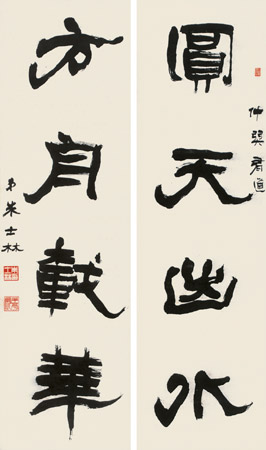 仲巽君道
圓天出水
方舟載華
弟朱士林